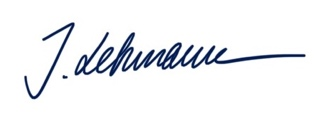 J. Lehmann